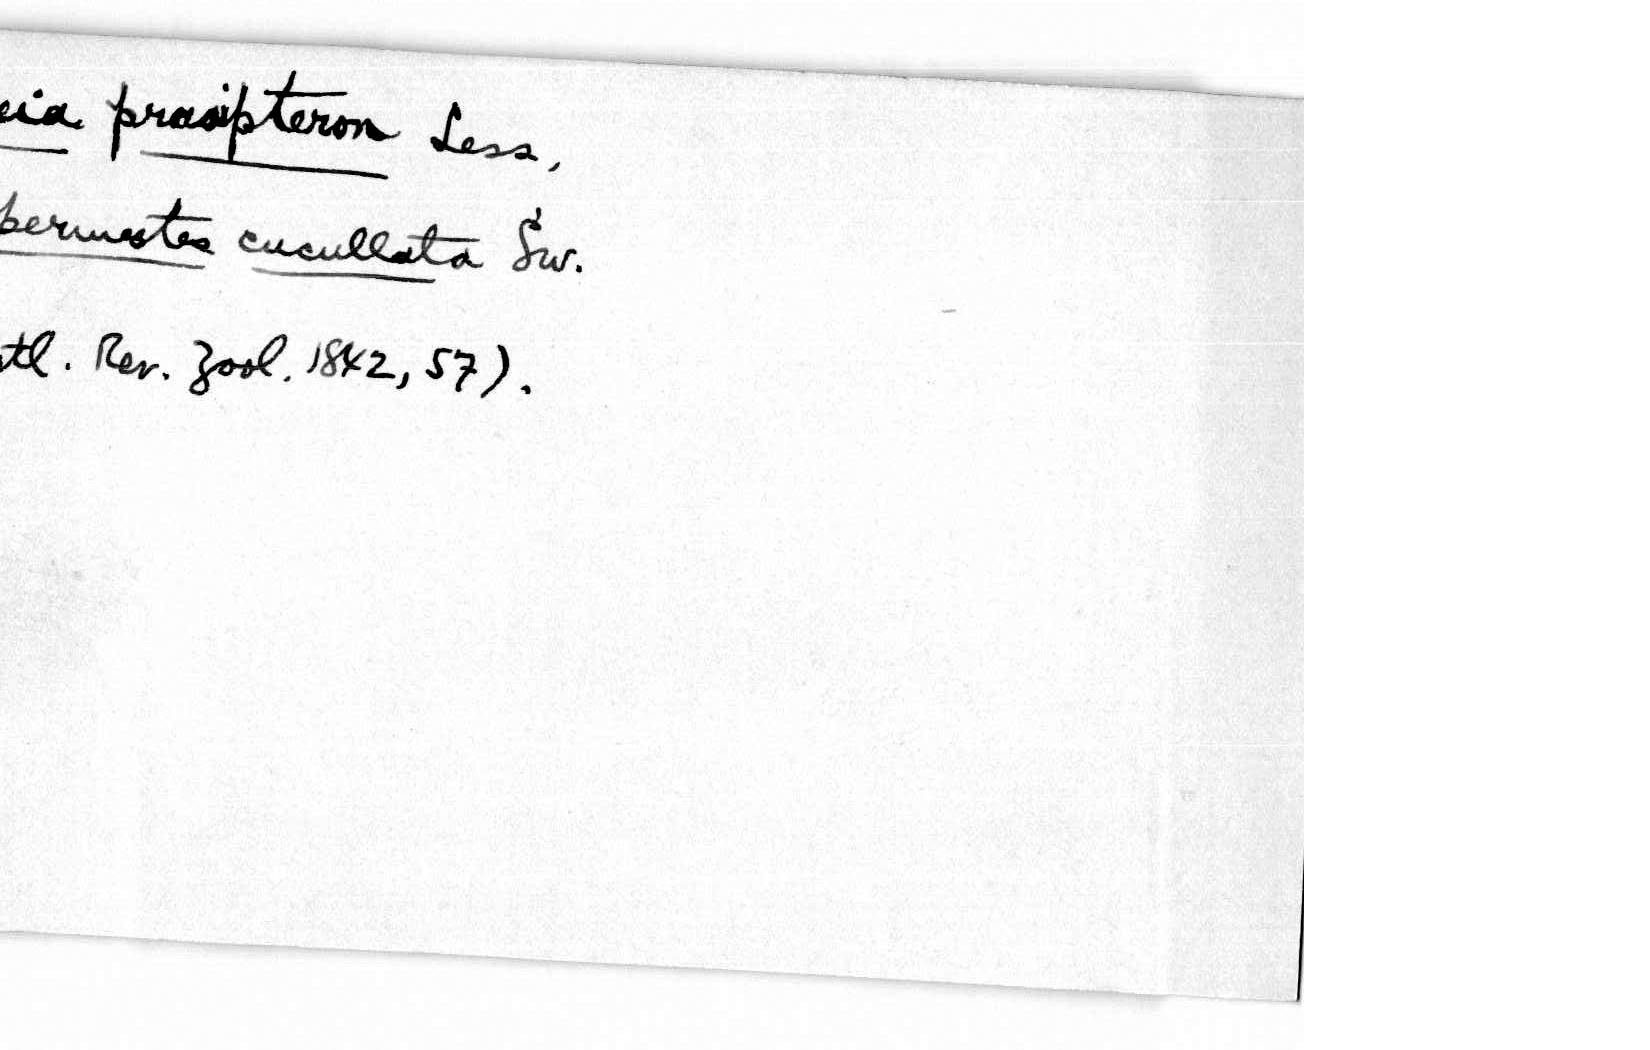 eia prasipteron Less,
permestes cucullata Sw.
tl. Rev. Zool. 1842, 57).